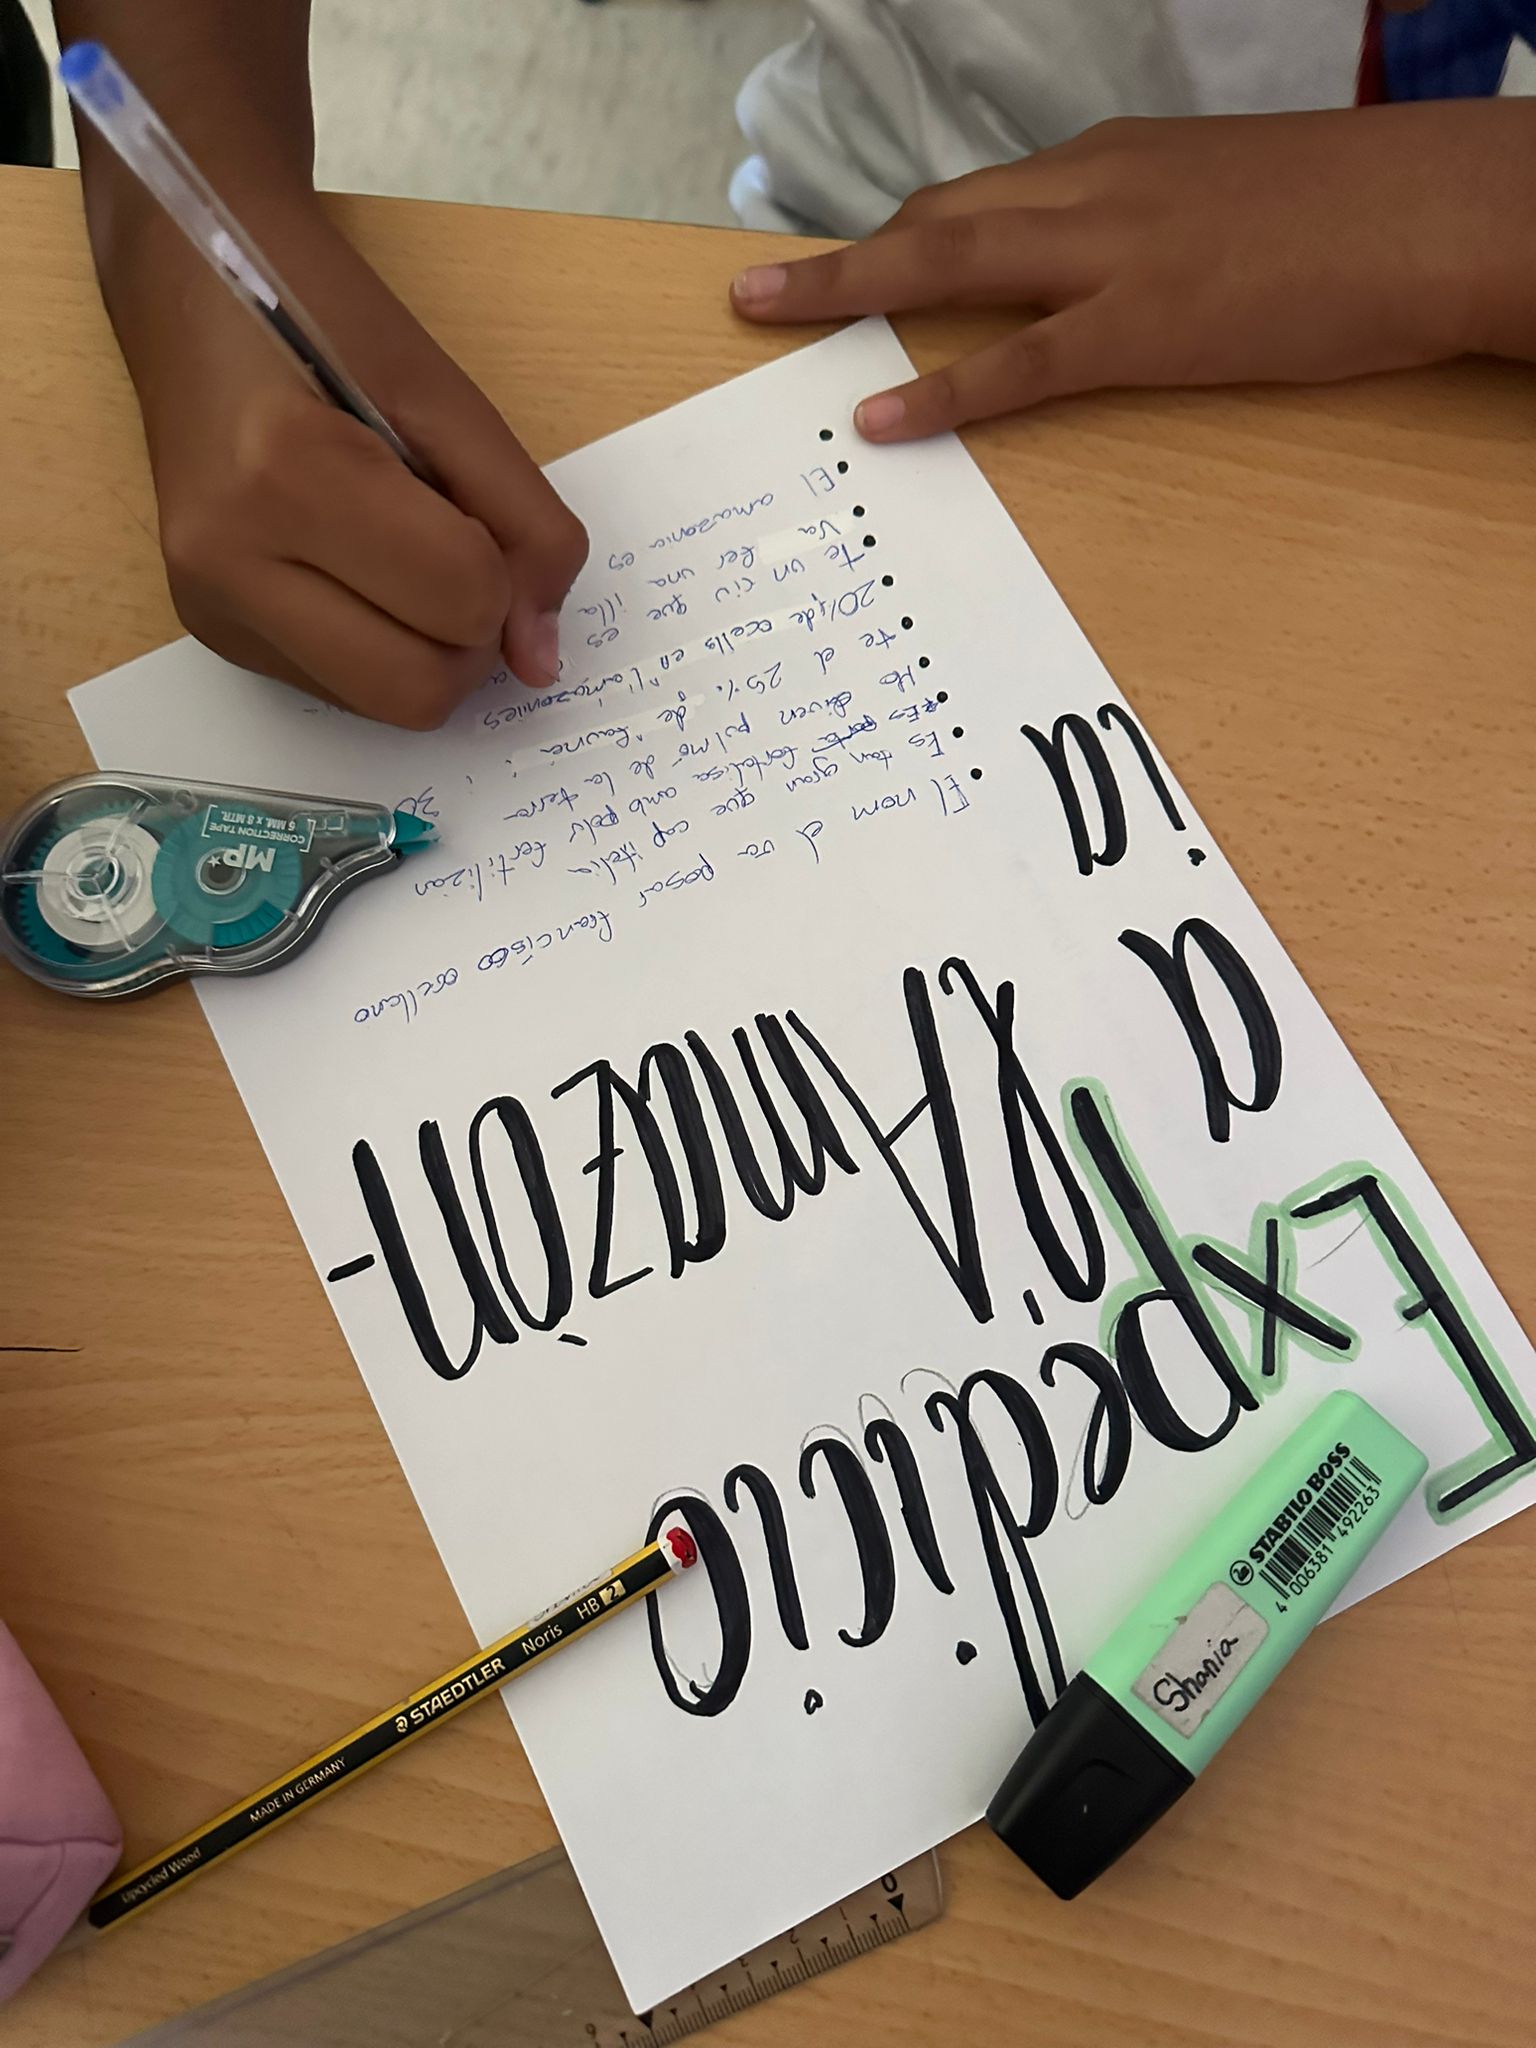 Expedició
a l'Amazòn-
ia
El nom el va posar francisco orellano
Es tan gran que cap italia
Es fortalisa amb pols fertilizan
Ho diven pulmó de la terra
te el 25% de "fauna"
20% de ocells en l'amazonies
te un riu que es
Va ser una illa
El amazonia es
MP
CORRECTION TAPE
5 MM. x 8 MTR.
STAEDTLER Noris HB 2
MADE IN GERMANY
Upcycled Wood
STABILO BOSS
4 006381 492263
Shania
0 1 2 3 6